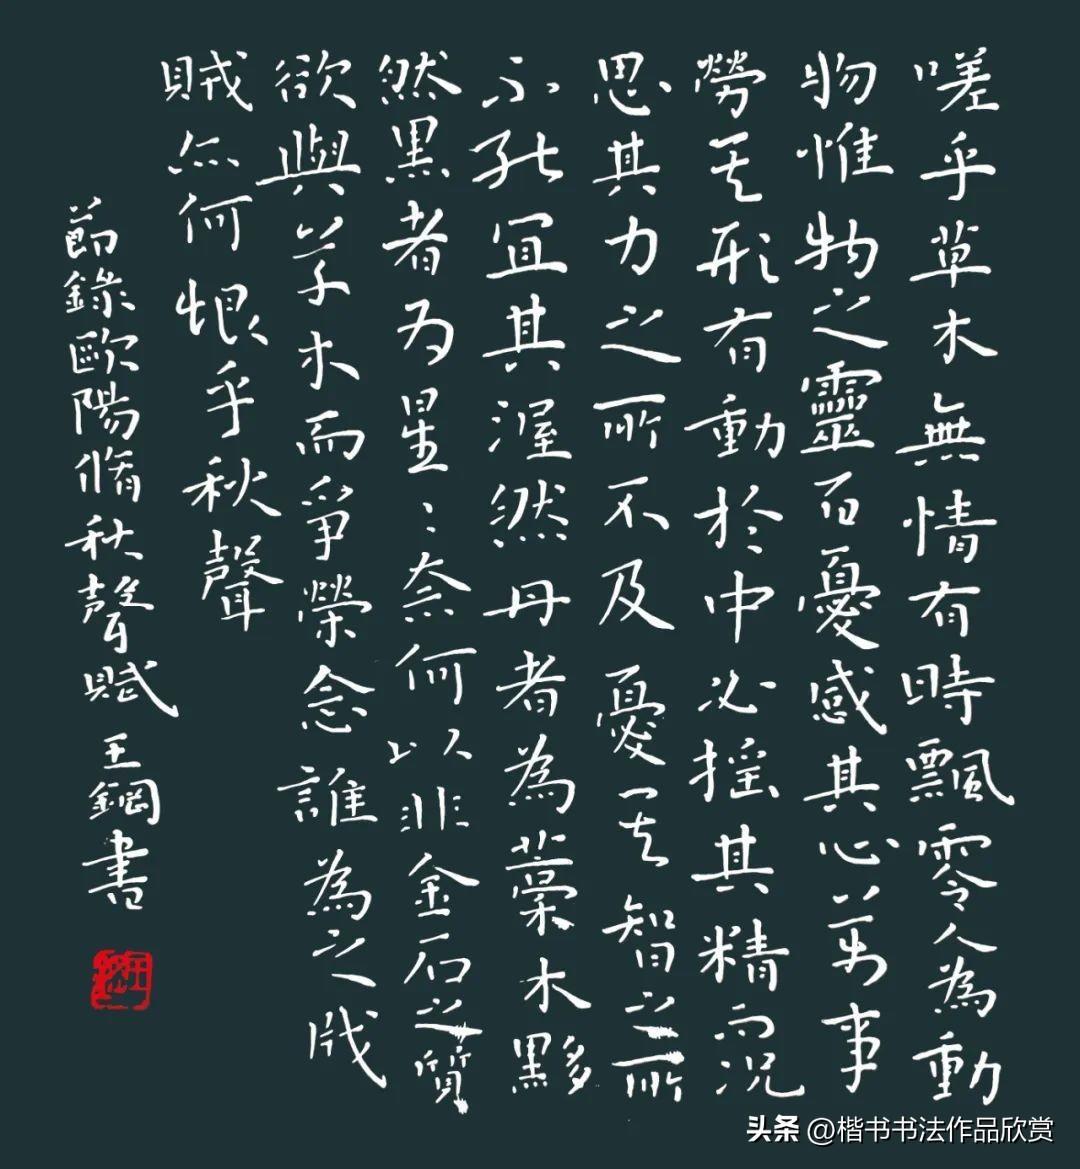 嗟乎草木無情有時飄零人為動
物惟物之靈百憂感其心萬事
勞其形有動於中必摇其精而況
思其力之所不及憂其智之所
不能宜其渥然丹者為藁木黟
然黑者为星〻奈何以非金石之質
欲與草木而爭榮念誰為之戕
賊亦何恨乎秋聲
節錄歐陽脩秋聲賦 王鋼書
头条 @楷书书法作品欣赏